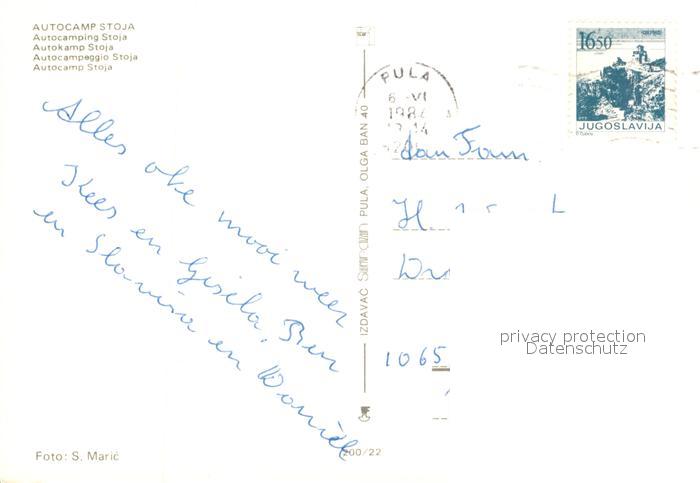 AUTOCAMP STOJA
Autocamping Stoja
Autokamp Stoja
Autocampeggio Stoja
Autocamp Stoja
Alles oke mooi weer
Kees en Gisela. Ben
en Slavisa en Daniële
Foto: S. Marić
IZDAVAČ PULA, OLGA BAN 40
200/22
PULA
6 -VI
14
16.50
JUGOSLAVIJA
Fam
H
L
1065
privacy protection
Datenschutz